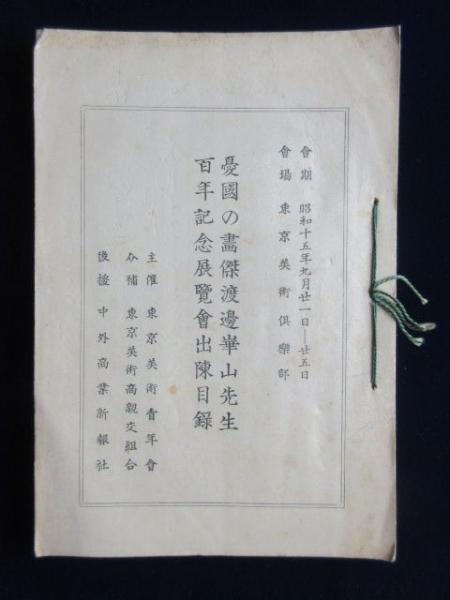 會期 昭和十五年九月廿一日—廿五日
會場 東京美術俱樂部
憂國の畫傑渡邊崋山先生
百年記念展覽會出陳目錄
主催 東京美術青年會
介補 東京美術商親交組合
後援 中外商業新報社